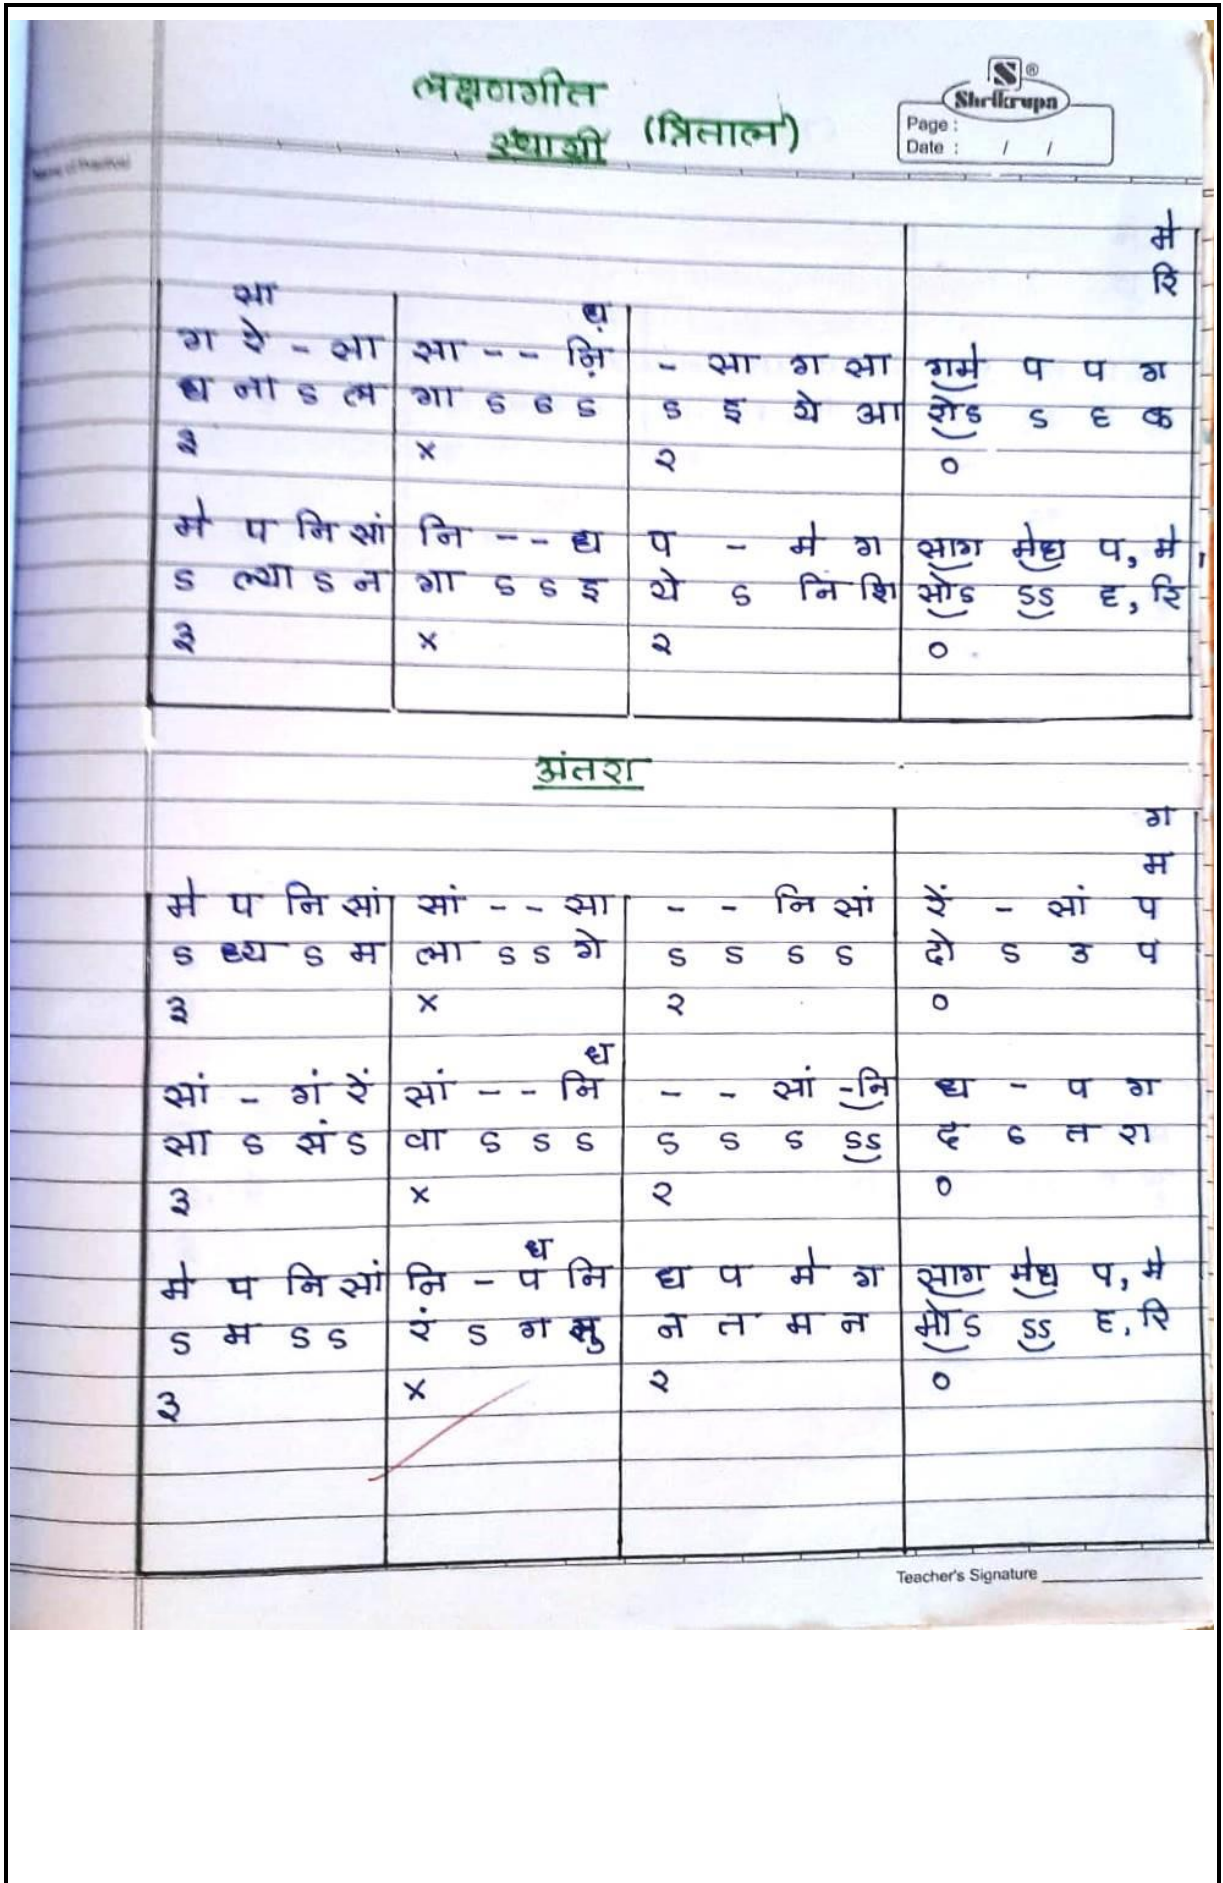 लक्षणगीत
स्थायी (त्रिताल)
S®
Shrikrupa
Page :
Date : / /
Name of Practical
मे
रि
सा ध़
ग रे - सा सा - - ऩि - सा ग सा गमे प प ग
ध ना ऽ ल गा ऽ ऽ ऽ ऽ इ ये आ रोऽ ऽ ह क
३ × २ ०
मे प नि सां नि - - ध प - मे ग साग मेध प, मे
ऽ ल्या ऽ न गा ऽ ऽ इ ये ऽ नि शि सोऽ ऽऽ ह, रि
३ × २ ०
अंतरा
ग
म
मे प नि सां सां - - सा - - नि सां रें - सां प
ऽ ध्य ऽ म ला ऽ ऽ गे ऽ ऽ ऽ ऽ दो ऽ उ प
३ × २ ०
ध
सां - गं रें सां - - नि - - सां -नि ध - प ग
सा ऽ सं ऽ वा ऽ ऽ ऽ ऽ ऽ ऽ ऽऽ द ऽ त रा
३ × २ ०
ध
मे प नि सां नि - प नि ध प मे ग साग मेध प, मे
ऽ म ऽ ऽ रं ऽ ग सु न त म न मोऽ ऽऽ ह, रि
३ × २ ०
Teacher's Signature